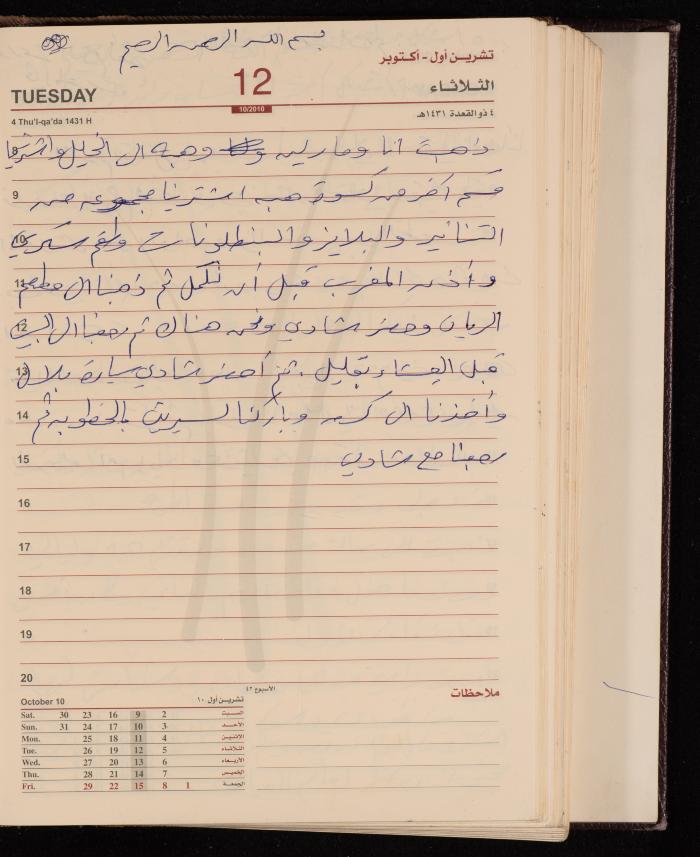 بسم الله الرحمن الرحيم
تشرين أول - أكتوبر
12
TUESDAY
الثلاثاء
10/2010
4 Thu'l-qa'da 1431 H
٤ ذو القعدة ١٤٣١هـ
8 ذهبت انا ومارلين وهبه الى الخليل واشترينا
9 قسم آخر من كسوة هبه اشترينا مجموعه من
10 التنانير والبلايز والبنطلونات وطقم سكري
11 وأذن المغرب قبل أن نكمل ثم ذهبنا الى مطعم
12 الريان وحضر شادي ونحن هناك ثم رجعنا الى البيت
13 قبل العشاء بقليل . ثم أحضر شادي سيارة بلال
14 وأخذنا الى وباركنا لسيرين بالخطوبه ثم
15 رجعنا مع شادي
16
17
18
19
20
October 10
تشرين أول ١٠
الأسبوع ٤٢
ملاحظات
Sat. 30 23 16 9 2 السبت
Sun. 31 24 17 10 3 الأحد
Mon. 25 18 11 4 الاثنين
Tue. 26 19 12 5 الثلاثاء
Wed. 27 20 13 6 الأربعاء
Thu. 28 21 14 7 الخميس
Fri. 29 22 15 8 1 الجمعة